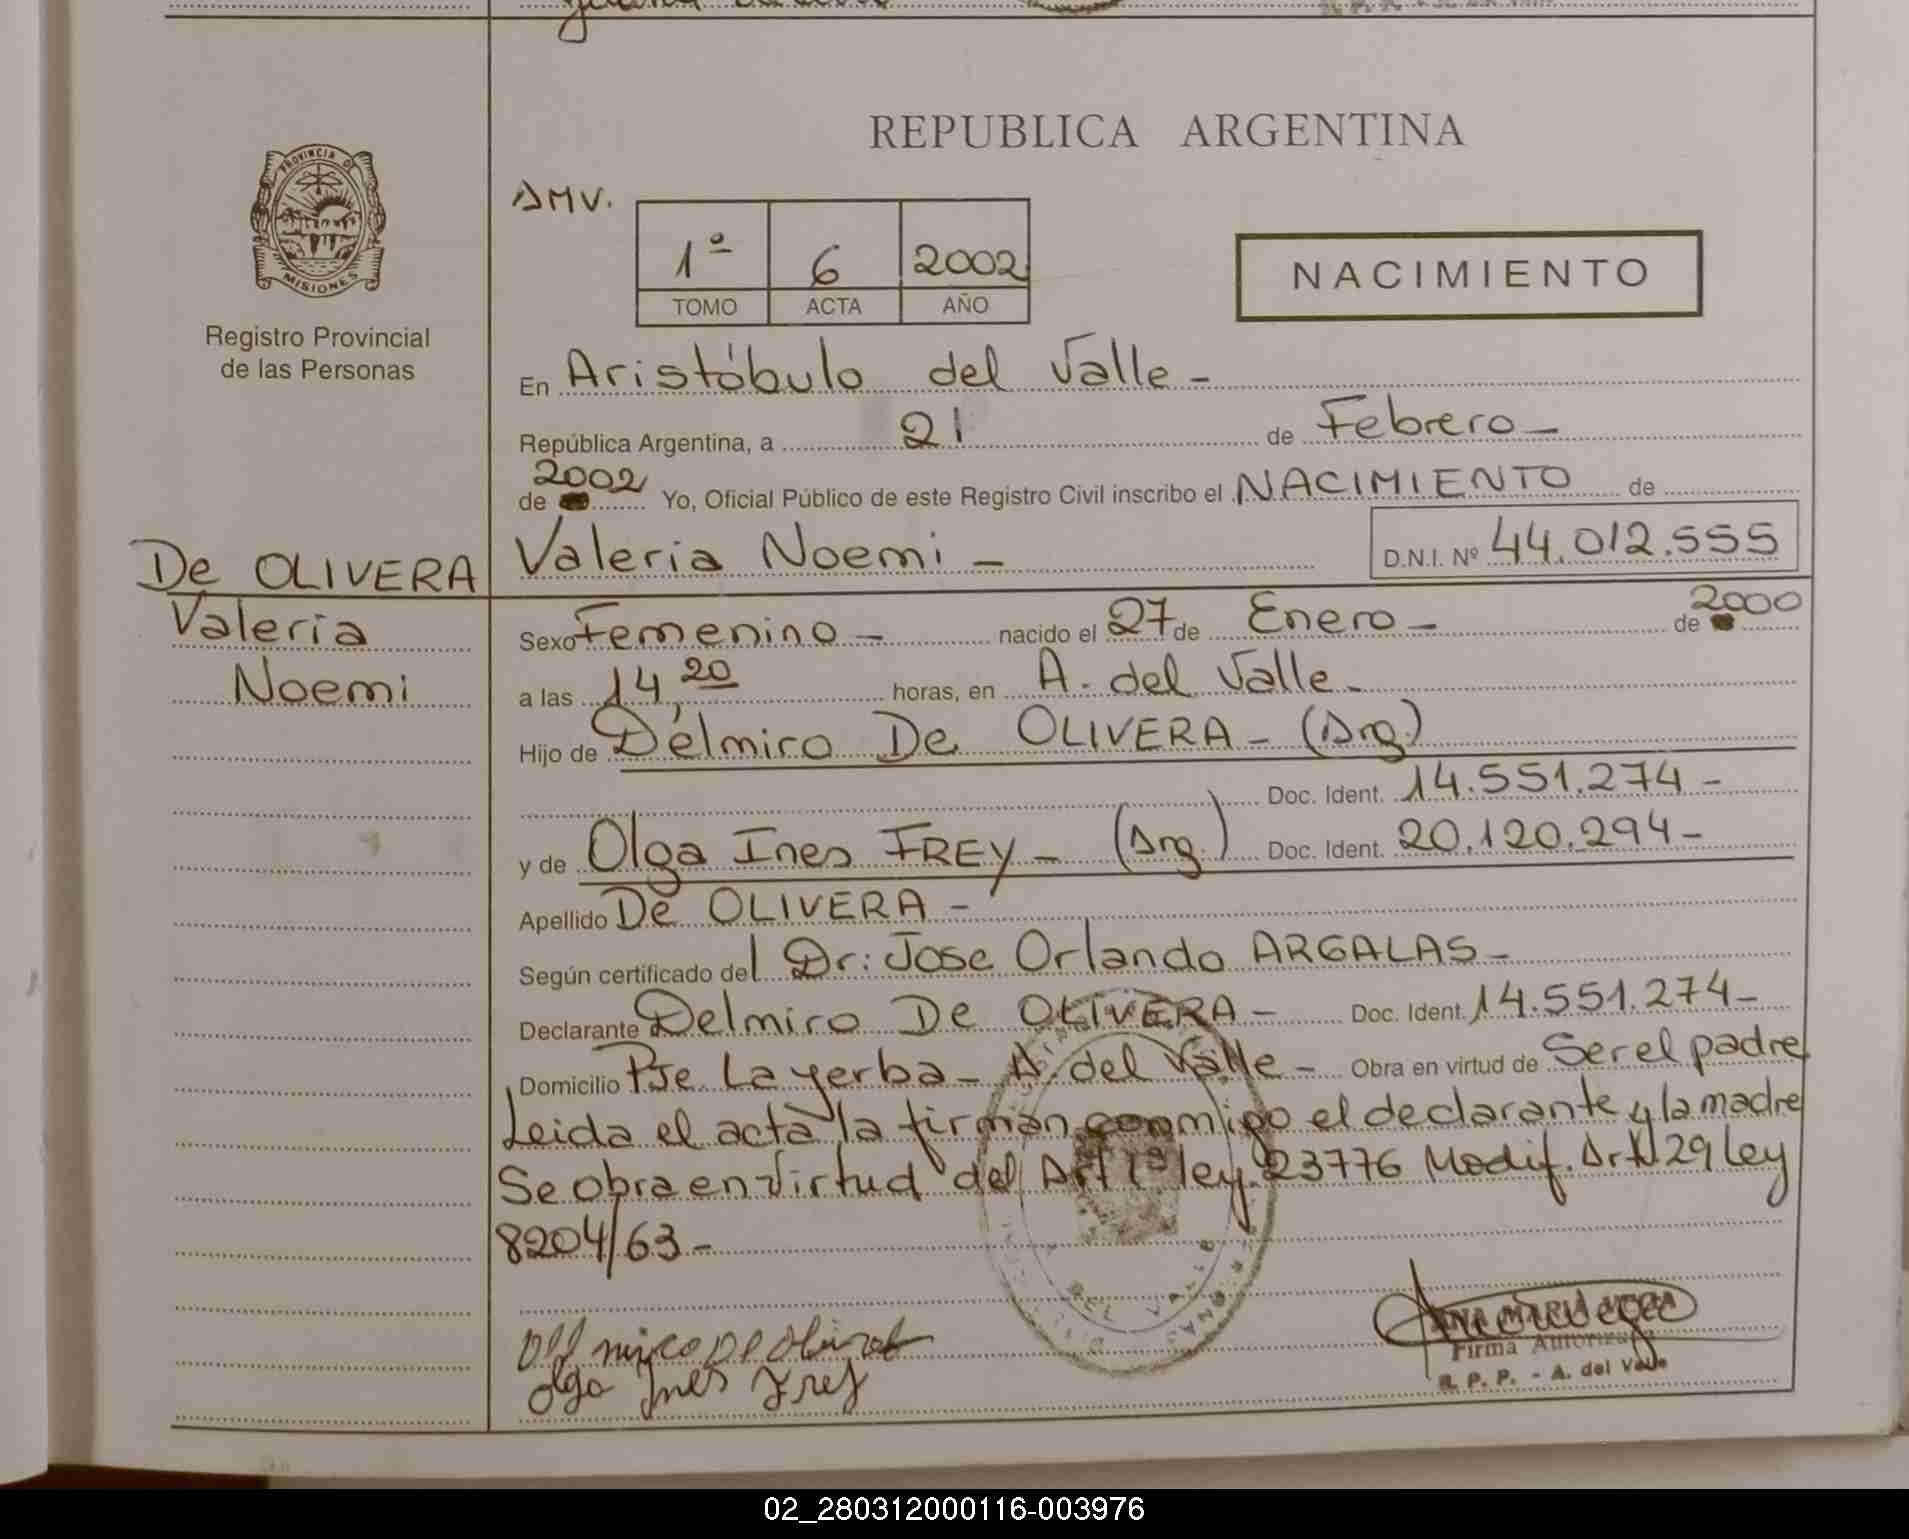 REPUBLICA ARGENTINA
PROVINCIA DE
MISIONES
Registro Provincial
de las Personas
AMV.
1º 6 2002
TOMO ACTA AÑO
NACIMIENTO
En Aristóbulo del Valle -
República Argentina, a 21 de Febrero -
de 2002 Yo, Oficial Público de este Registro Civil inscribo el NACIMIENTO de
Valeria Noemi - D.N.I. Nº 44.012.555
De OLIVERA
Valeria
Noemi
Sexo Femenino - nacido el 27 de Enero - de 2000
a las 14,20 horas, en A. del Valle -
Hijo de Délmiro De OLIVERA - (Arg.)
Doc. Ident. 14.551.274 -
y de Olga Ines FREY - (Arg.) Doc. Ident. 20.120.294 -
Apellido De OLIVERA -
Según certificado del Dr: Jose Orlando ARGALAS -
Declarante Delmiro De OLIVERA - Doc. Ident. 14.551.274 -
Domicilio Pje La yerba - A. del Valle - Obra en virtud de Ser el padre
Leida el acta la firman conmigo el declarante y la madre
Se obra en virtud del Art 1º ley 23776 Modif. Art 29 ley
8204/63 -
DEL VALLE
Olga Ines Frey
ANA MARIA
Firma Autorizada
R. P. P. - A. del Valle
02_280312000116-003976